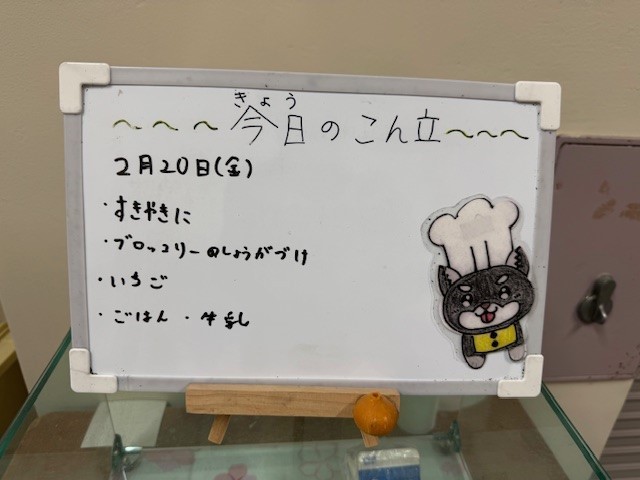 きょう
～～～今日のこん立～～～
2月20日(金)
・すきやきに
・ブロッコリーのしょうがづけ
・いちご
・ごはん ・牛乳